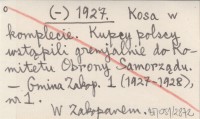 (-) 1927. Kosa w
komplecie. Kupcy polscy
wstąpili gremjalnie do Ko-
mitetu Obrony Samorządu.
— Gmina Zakop. 1 (1927-1928),
nr. 1.
W Zakopanem.